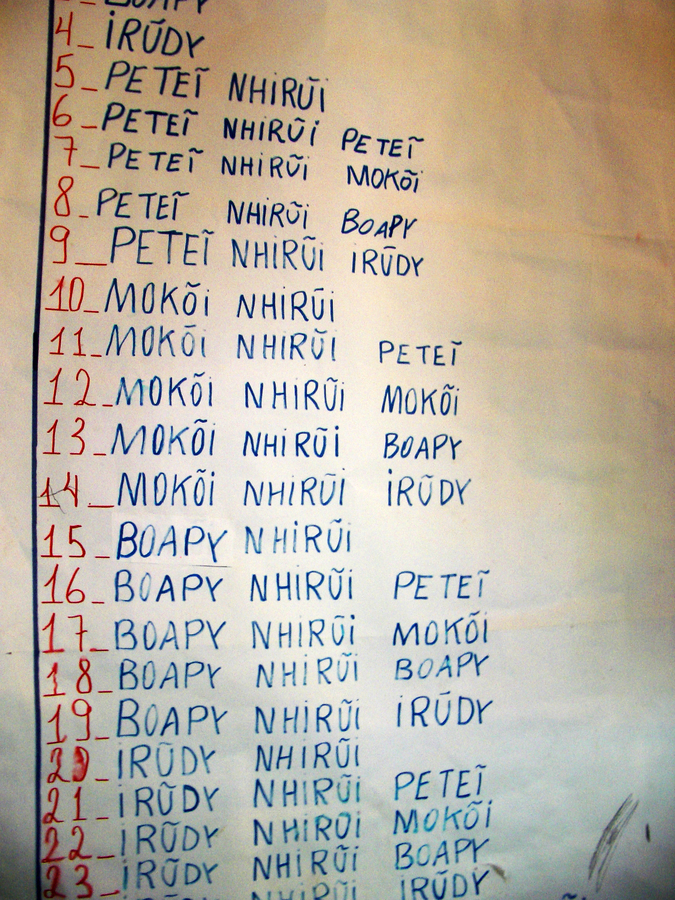 BOAPY
4_IRŨDY
5_PETEĨ NHIRŨI
6_PETEĨ NHIRŨI PETEĨ
7_PETEĨ NHIRŨI MOKÕI
8_PETEĨ NHIRŨI BOAPY
9_PETEĨ NHIRŨI IRŨDY
10_MOKÕI NHIRŨI
11_MOKÕI NHIRŨI PETEĨ
12_MOKÕI NHIRŨI MOKÕI
13_MOKÕI NHIRŨI BOAPY
14_MOKÕI NHIRŨI IRŨDY
15_BOAPY NHIRŨI
16_BOAPY NHIRŨI PETEĨ
17_BOAPY NHIRŨI MOKÕI
18_BOAPY NHIRŨI BOAPY
19_BOAPY NHIRŨI IRŨDY
20_IRŨDY NHIRŨI
21_IRŨDY NHIRŨI PETEĨ
22_IRŨDY NHIRŨI MOKÕI
23_IRŨDY NHIRŨI BOAPY
IRŨDY NHIRŨI IRŨDY